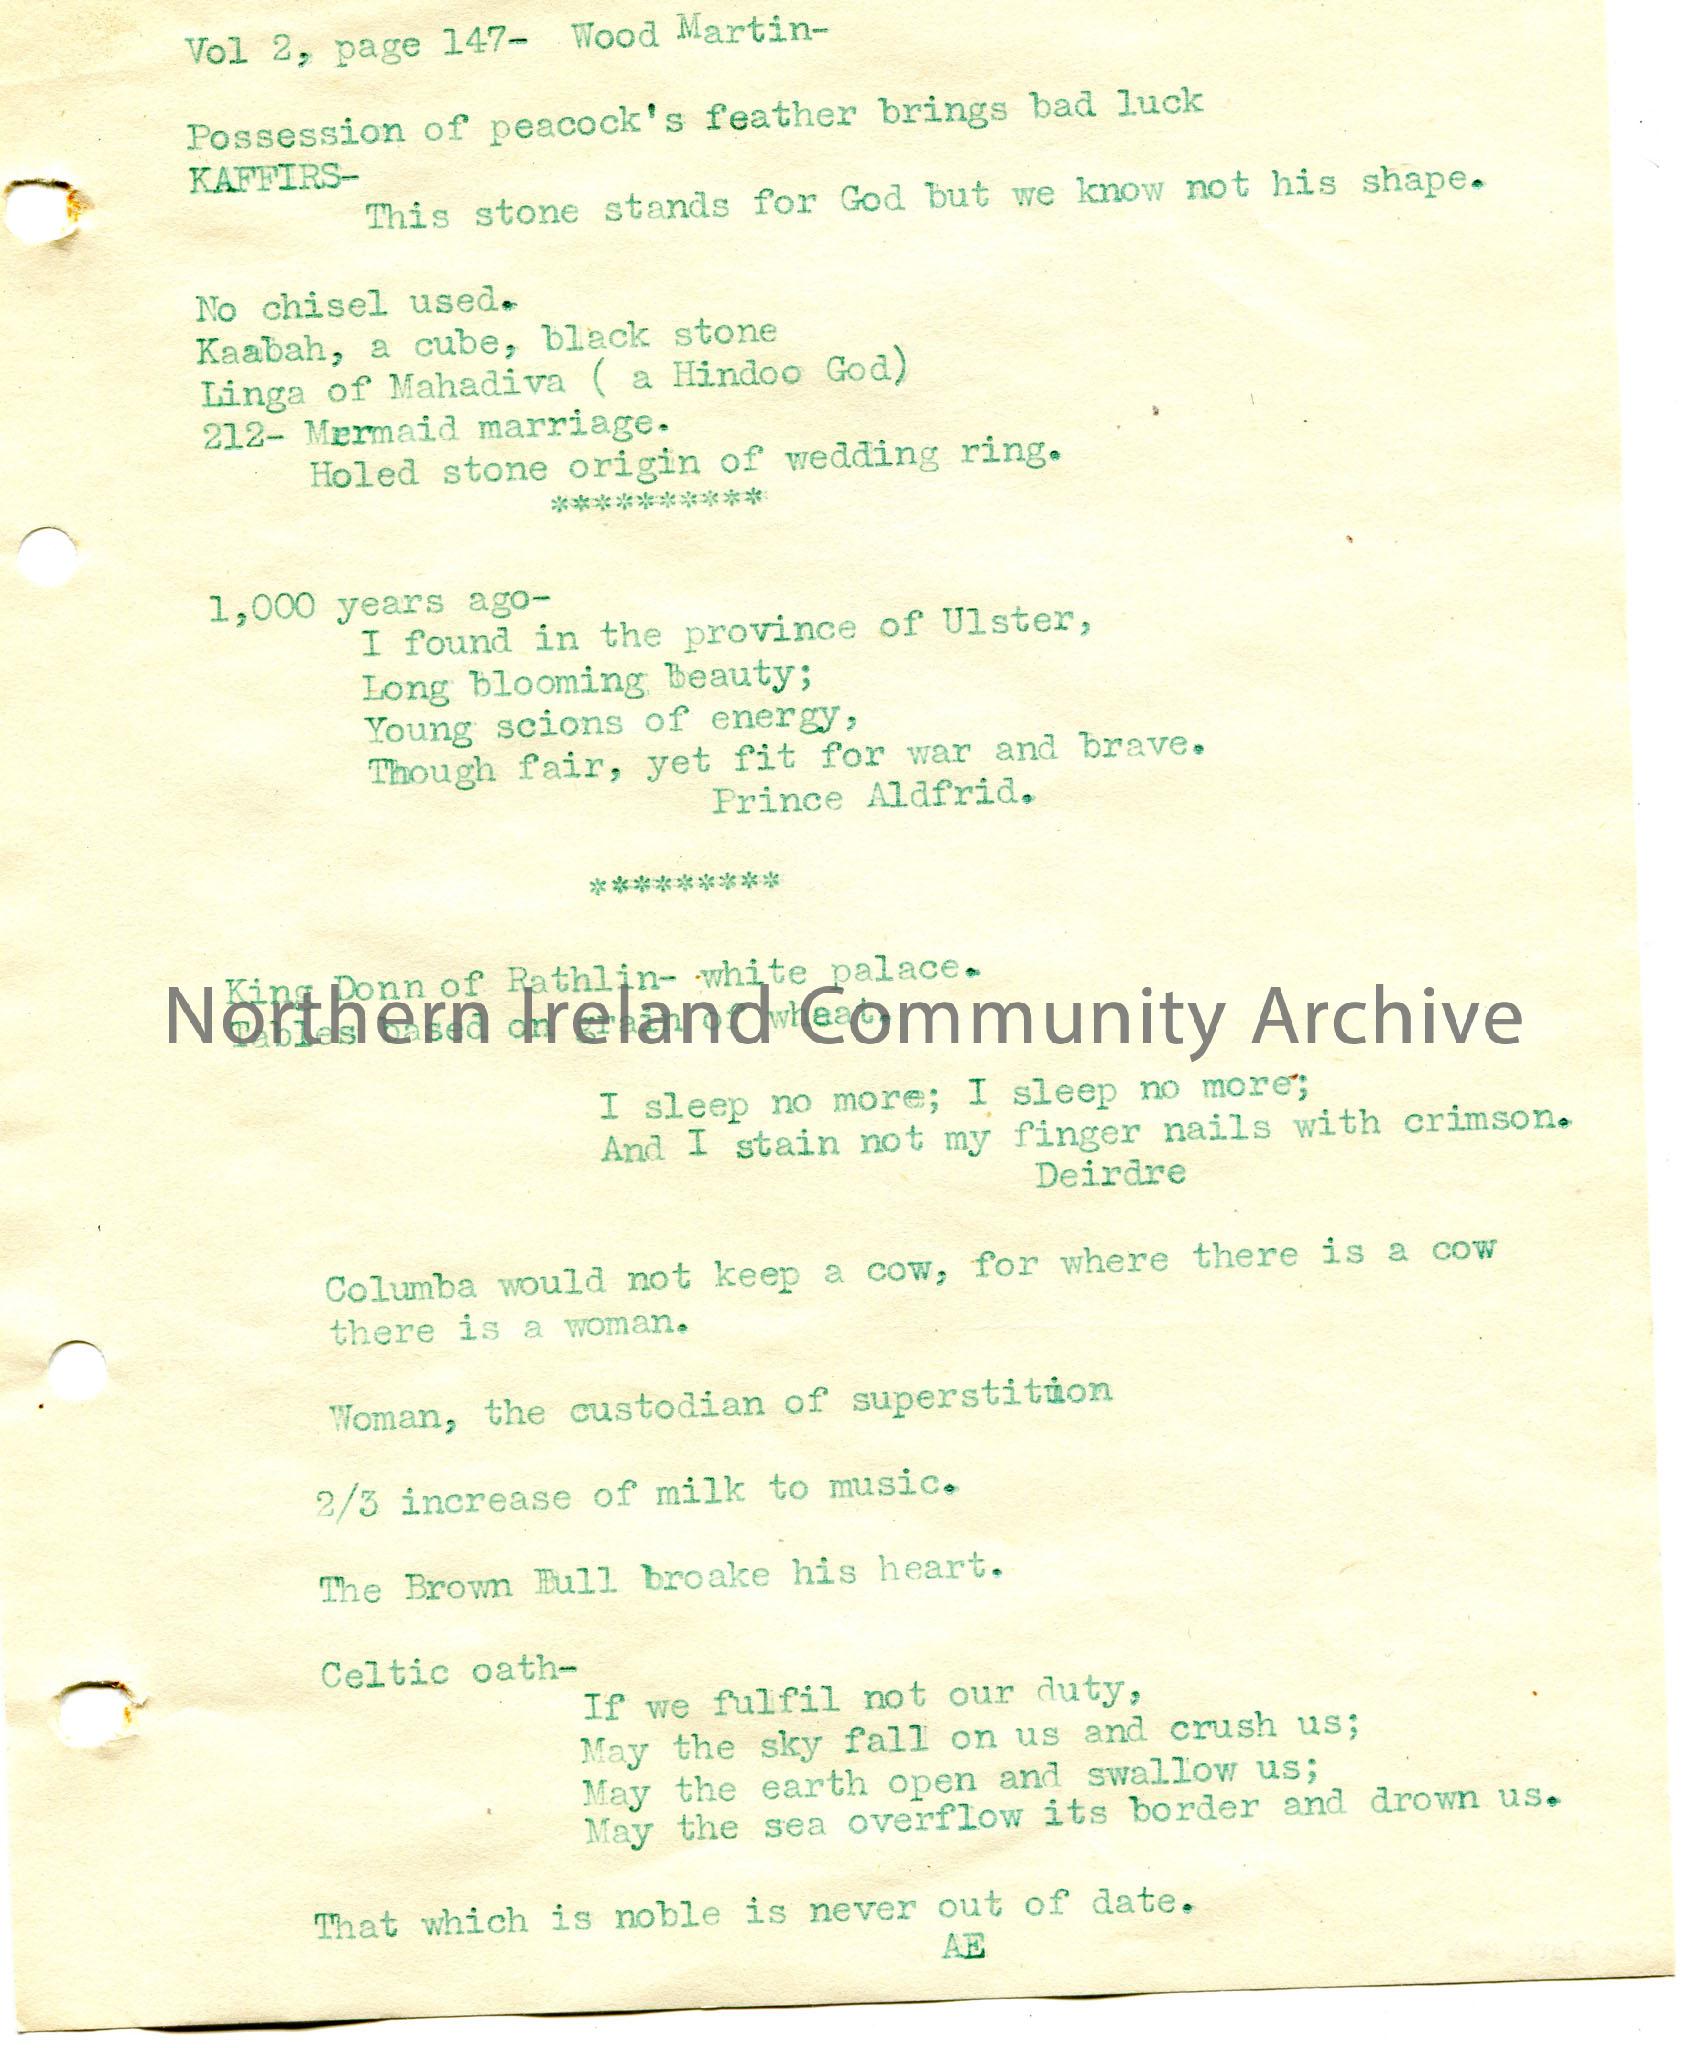 Vol 2, page 147- Wood Martin-
Possession of peacock's feather brings bad luck
KAFFIRS-
This stone stands for God but we know not his shape.
No chisel used.
Kaabah, a cube, black stone
Linga of Mahadiva ( a Hindoo God)
212- Mermaid marriage.
Holed stone origin of wedding ring.
**********
1,000 years ago-
I found in the province of Ulster,
Long blooming beauty;
Young scions of energy,
Though fair, yet fit for war and brave.
Prince Aldfrid.
*********
King Donn of Rathlin- white palace.
Tables based on grain of wheat.
Northern Ireland Community Archive
I sleep no more; I sleep no more;
And I stain not my finger nails with crimson.
Deirdre
Columba would not keep a cow, for where there is a cow
there is a woman.
Woman, the custodian of superstition
2/3 increase of milk to music.
The Brown Bull broake his heart.
Celtic oath-
If we fulfil not our duty,
May the sky fall on us and crush us;
May the earth open and swallow us;
May the sea overflow its border and drown us.
That which is noble is never out of date.
AE